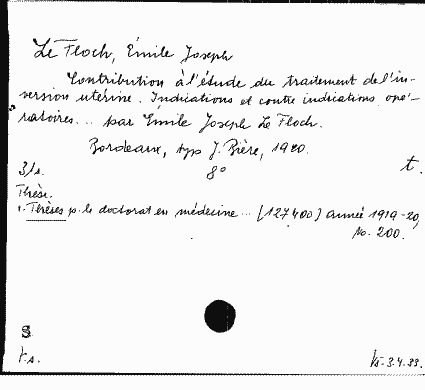 Le Floch, Émile Joseph
Contribution à l'étude du traitement de l'in-
version utérine. Indications et contre indications opé-
ratoires... par Emile Joseph Le Floch.
Bordeaux, typ J. Bière, 1920.
8° t.
Thèse.
Thèses p. le doctorat en médecine... [127400] année 1919-20,
no. 200.
S